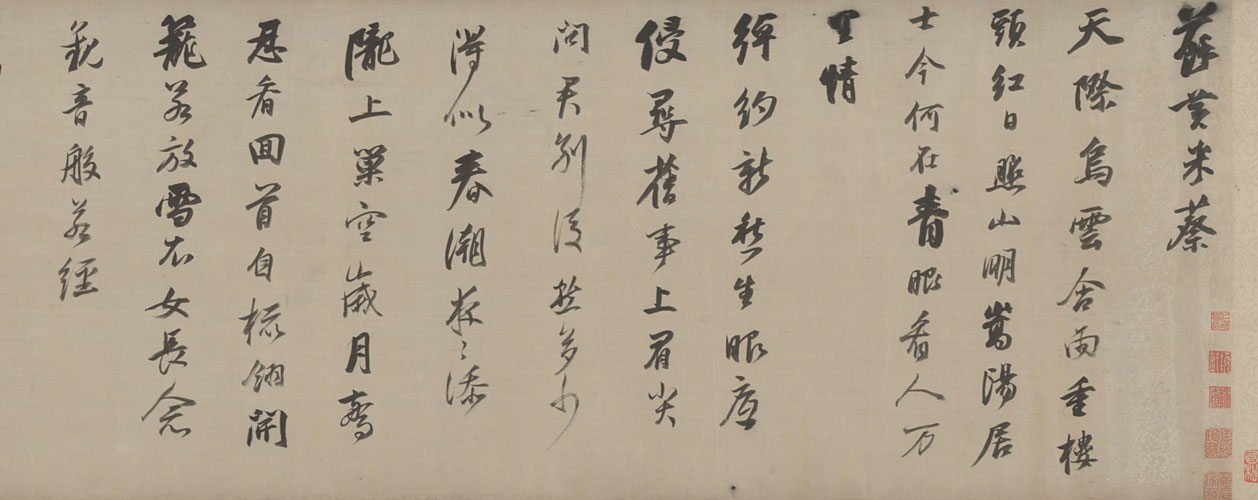 蘇黃米蔡
天際烏雲含雨重樓
頭紅日照山明嵩陽居
士今何在青眼看人万
里情
綽約新愁生眼底
侵尋舊事上眉尖
問君別後愁多少
得似春潮夜〻添
隴上巢空歲月驚
忍看回首自梳翎開
籠若放雪衣女長念
觀音般若經